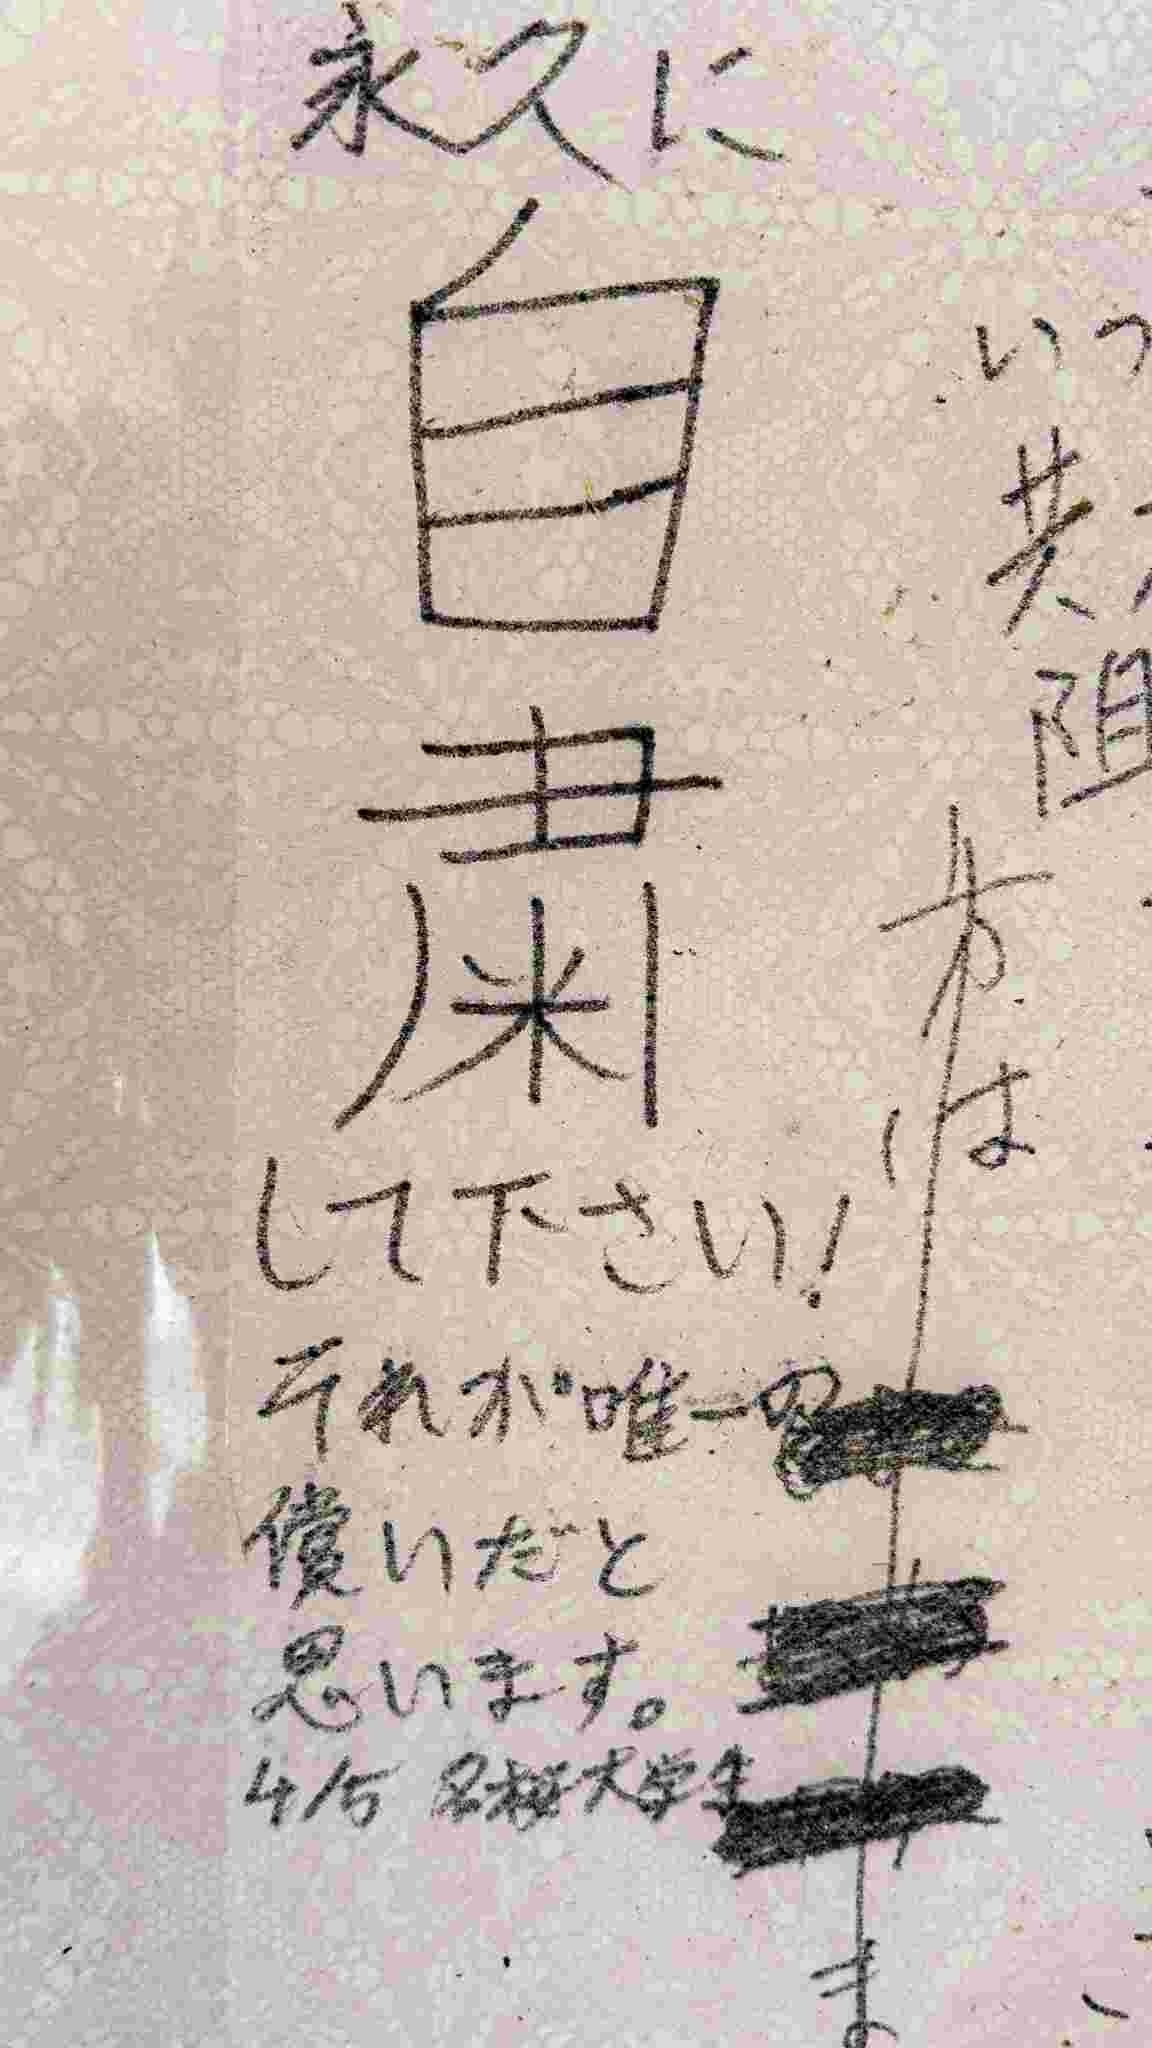 永久に
自
粛
して下さい!
それが唯一の
償いだと
思います。
4/5 名桜大学生
いつ
共
阻
方
は
ま